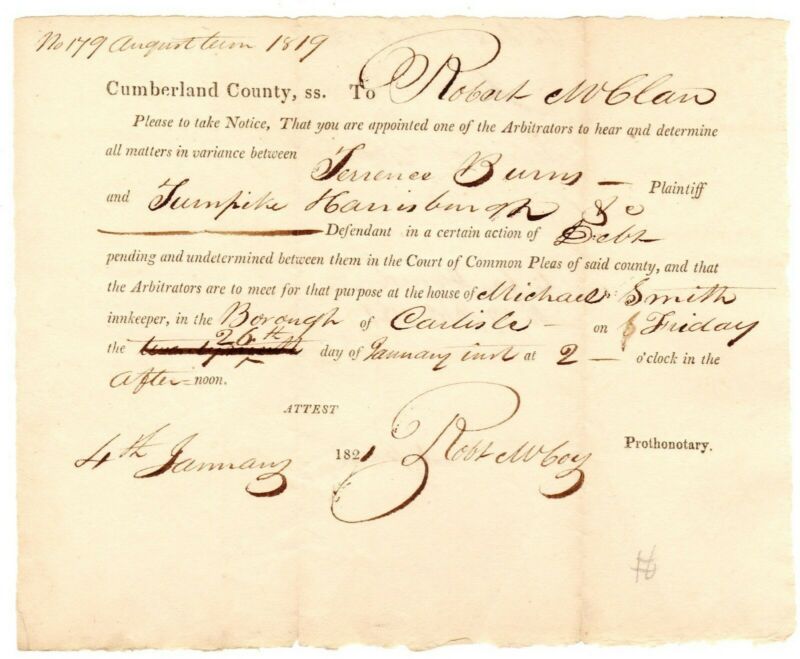 No 179 August term 1819
Cumberland County, ss. To Robert McClan
Please to take Notice, That you are appointed one of the Arbitrators to hear and determine
all matters in variance between
Terrence Burns — Plaintiff
and Turnpike Harrisburgh &c
Defendant in a certain action of Debt
pending and undetermined between them in the Court of Common Pleas of said county, and that
the Arbitrators are to meet for that purpose at the house of Michael Smith
innkeeper, in the Borough of Carlisle — on Friday
26th
the day of January inst at 2 — o'clock in the
After=noon.
ATTEST
4th January 1821 Robt McCoy Prothonotary.